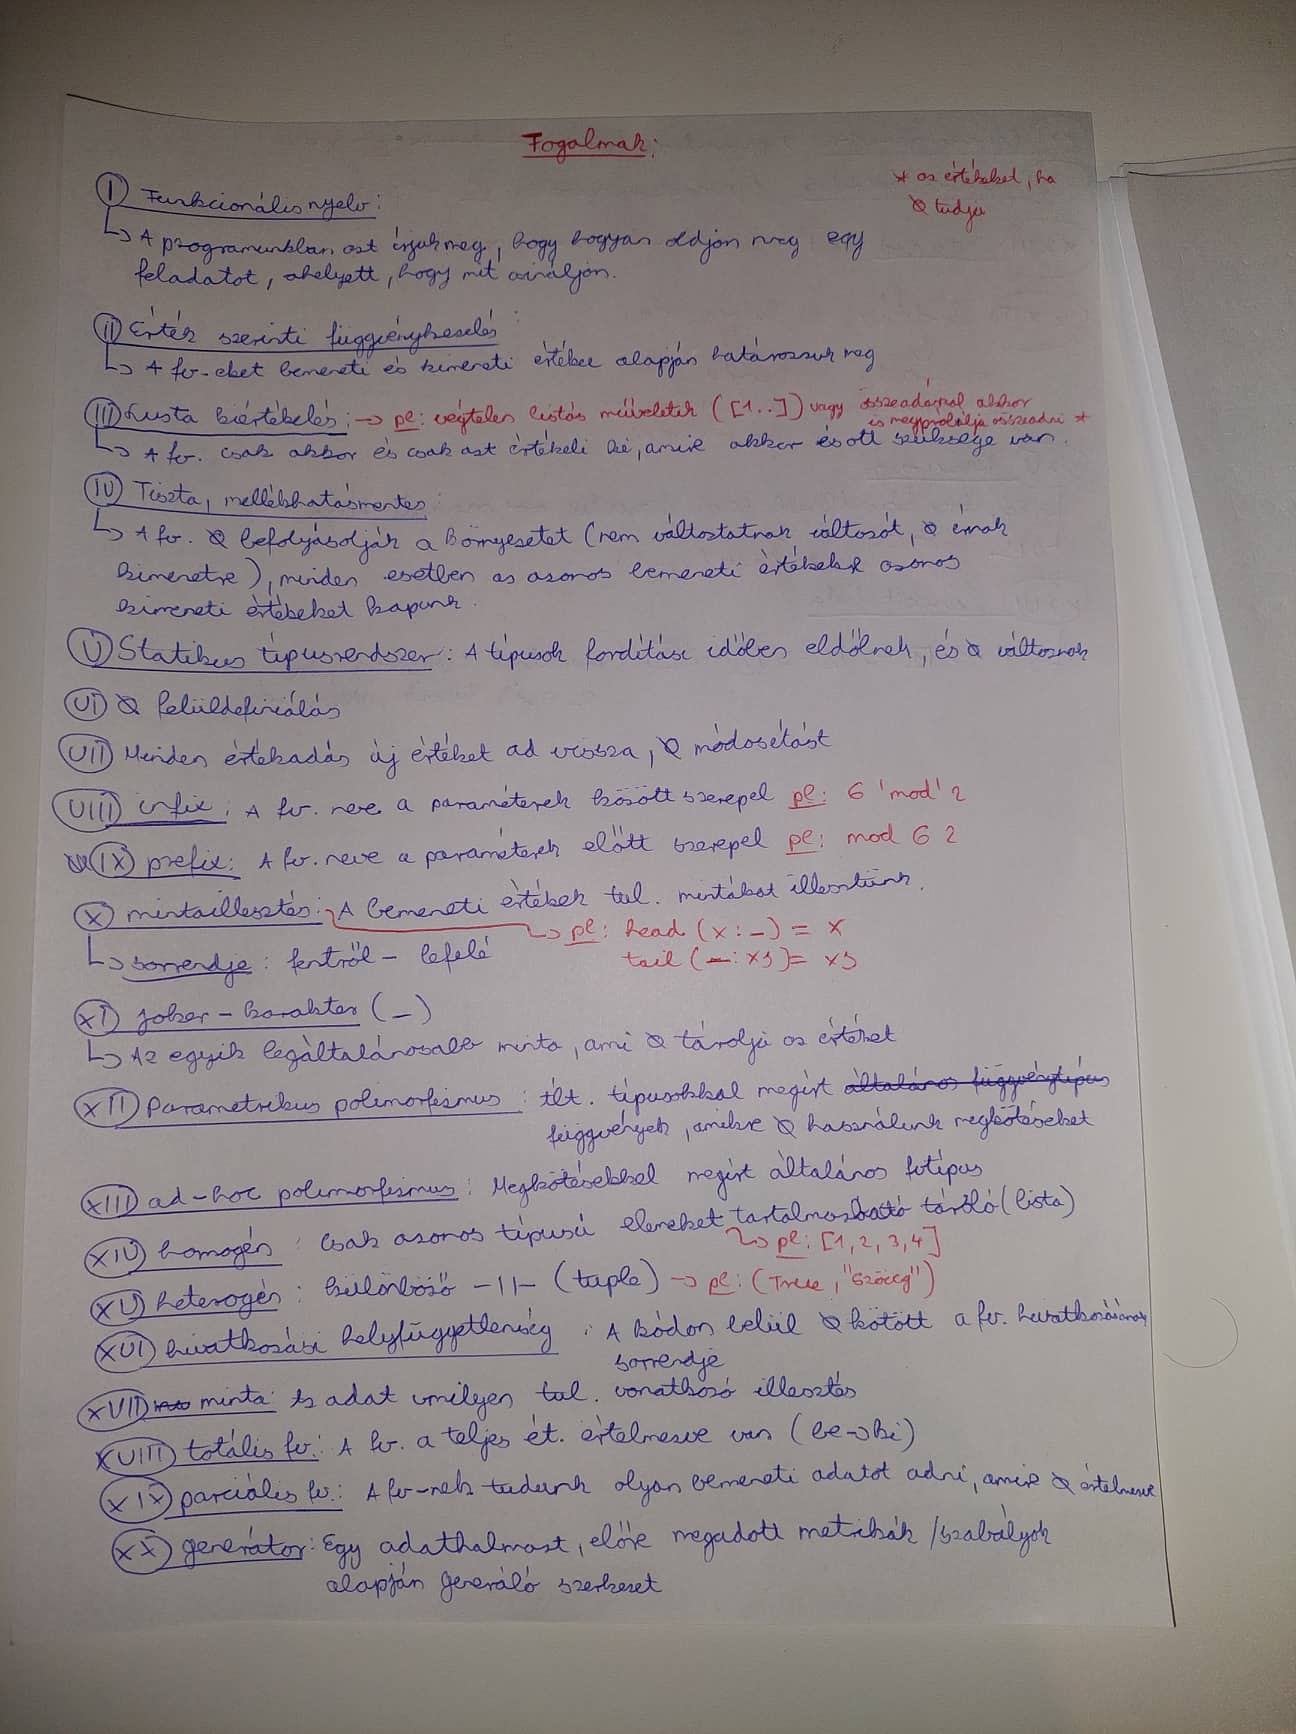 Fogalmak:
* az értékeket, ha
Ø tudja
I Funkcionális nyelv:
↳ A programunkban azt írjuk meg, hogy hogyan oldjon meg egy
feladatot, ahelyett, hogy mit csináljon.
II Érték szerinti függvénykezelés
↳ A fv.-eket bemeneti és kimeneti értékei alapján határozzuk meg
III Lusta kiértékelés: → pl: végtelen listás műveletek ([1..]) vagy összeadásnál akkor
is megpróbálja összeadni *
↳ A fv. csak akkor és csak azt értékeli ki, amire akkor és ott szüksége van.
IV Tiszta, mellékhatásmentes:
↳ A fv. Ø befolyásolják a környezetet (nem változtatnak változót, Ø írnak
kimenetre), minden esetben az azonos bemeneti értékekre azonos
kimeneti értékeket kapunk.
V Statikus típusrendszer: A típusok fordítási időben eldőlnek, és Ø változnak
VI Ø felüldefiniálás
VII Minden értékadás új értéket ad vissza, Ø módosítást
VIII infix: A fv. neve a paraméterek között szerepel pl: 6 'mod' 2
IX prefix: A fv. neve a paraméterek előtt szerepel pl: mod 6 2
X mintaillesztés: A bemeneti értékek tul. mintákat illesztünk.
→ pl: head (x:_) = x
↳ sorrendje: fentről - lefelé
tail (_:xs) = xs
XI joker-karakter (_)
↳ Az egyik legáltalánosabb minta, ami Ø tárolja az értéket
XII Parametrikus polimorfizmus: ált. típusokkal megírt általános függvénytípus
függvények, amikre Ø használunk megkötéseket
XIII ad-hoc polimorfizmus: Megkötésekkel megírt általános fvtípus
XIV homogén: Csak azonos típusú elemeket tartalmazható tároló (lista)
↳ pl: [1, 2, 3, 4]
XV heterogén: különböző -||- (tuple) → pl: (True, "Szöveg")
XVI hivatkozási helyfüggetlenség: A kódon belül Ø kötött a fv. hivatkozásának
sorrendje
XVII minta: Az adat vmilyen tul. vonatkozó illesztés
XVIII totális fv.: A fv. a teljes ét. értelmezve van (be→ki)
XIX parciális fv.: A fv-nek tudunk olyan bemeneti adatot adni, amire Ø értelmezve
XX generátor: Egy adathalmazt, előre megadott metrikák /szabályok
alapján generáló szerkezet